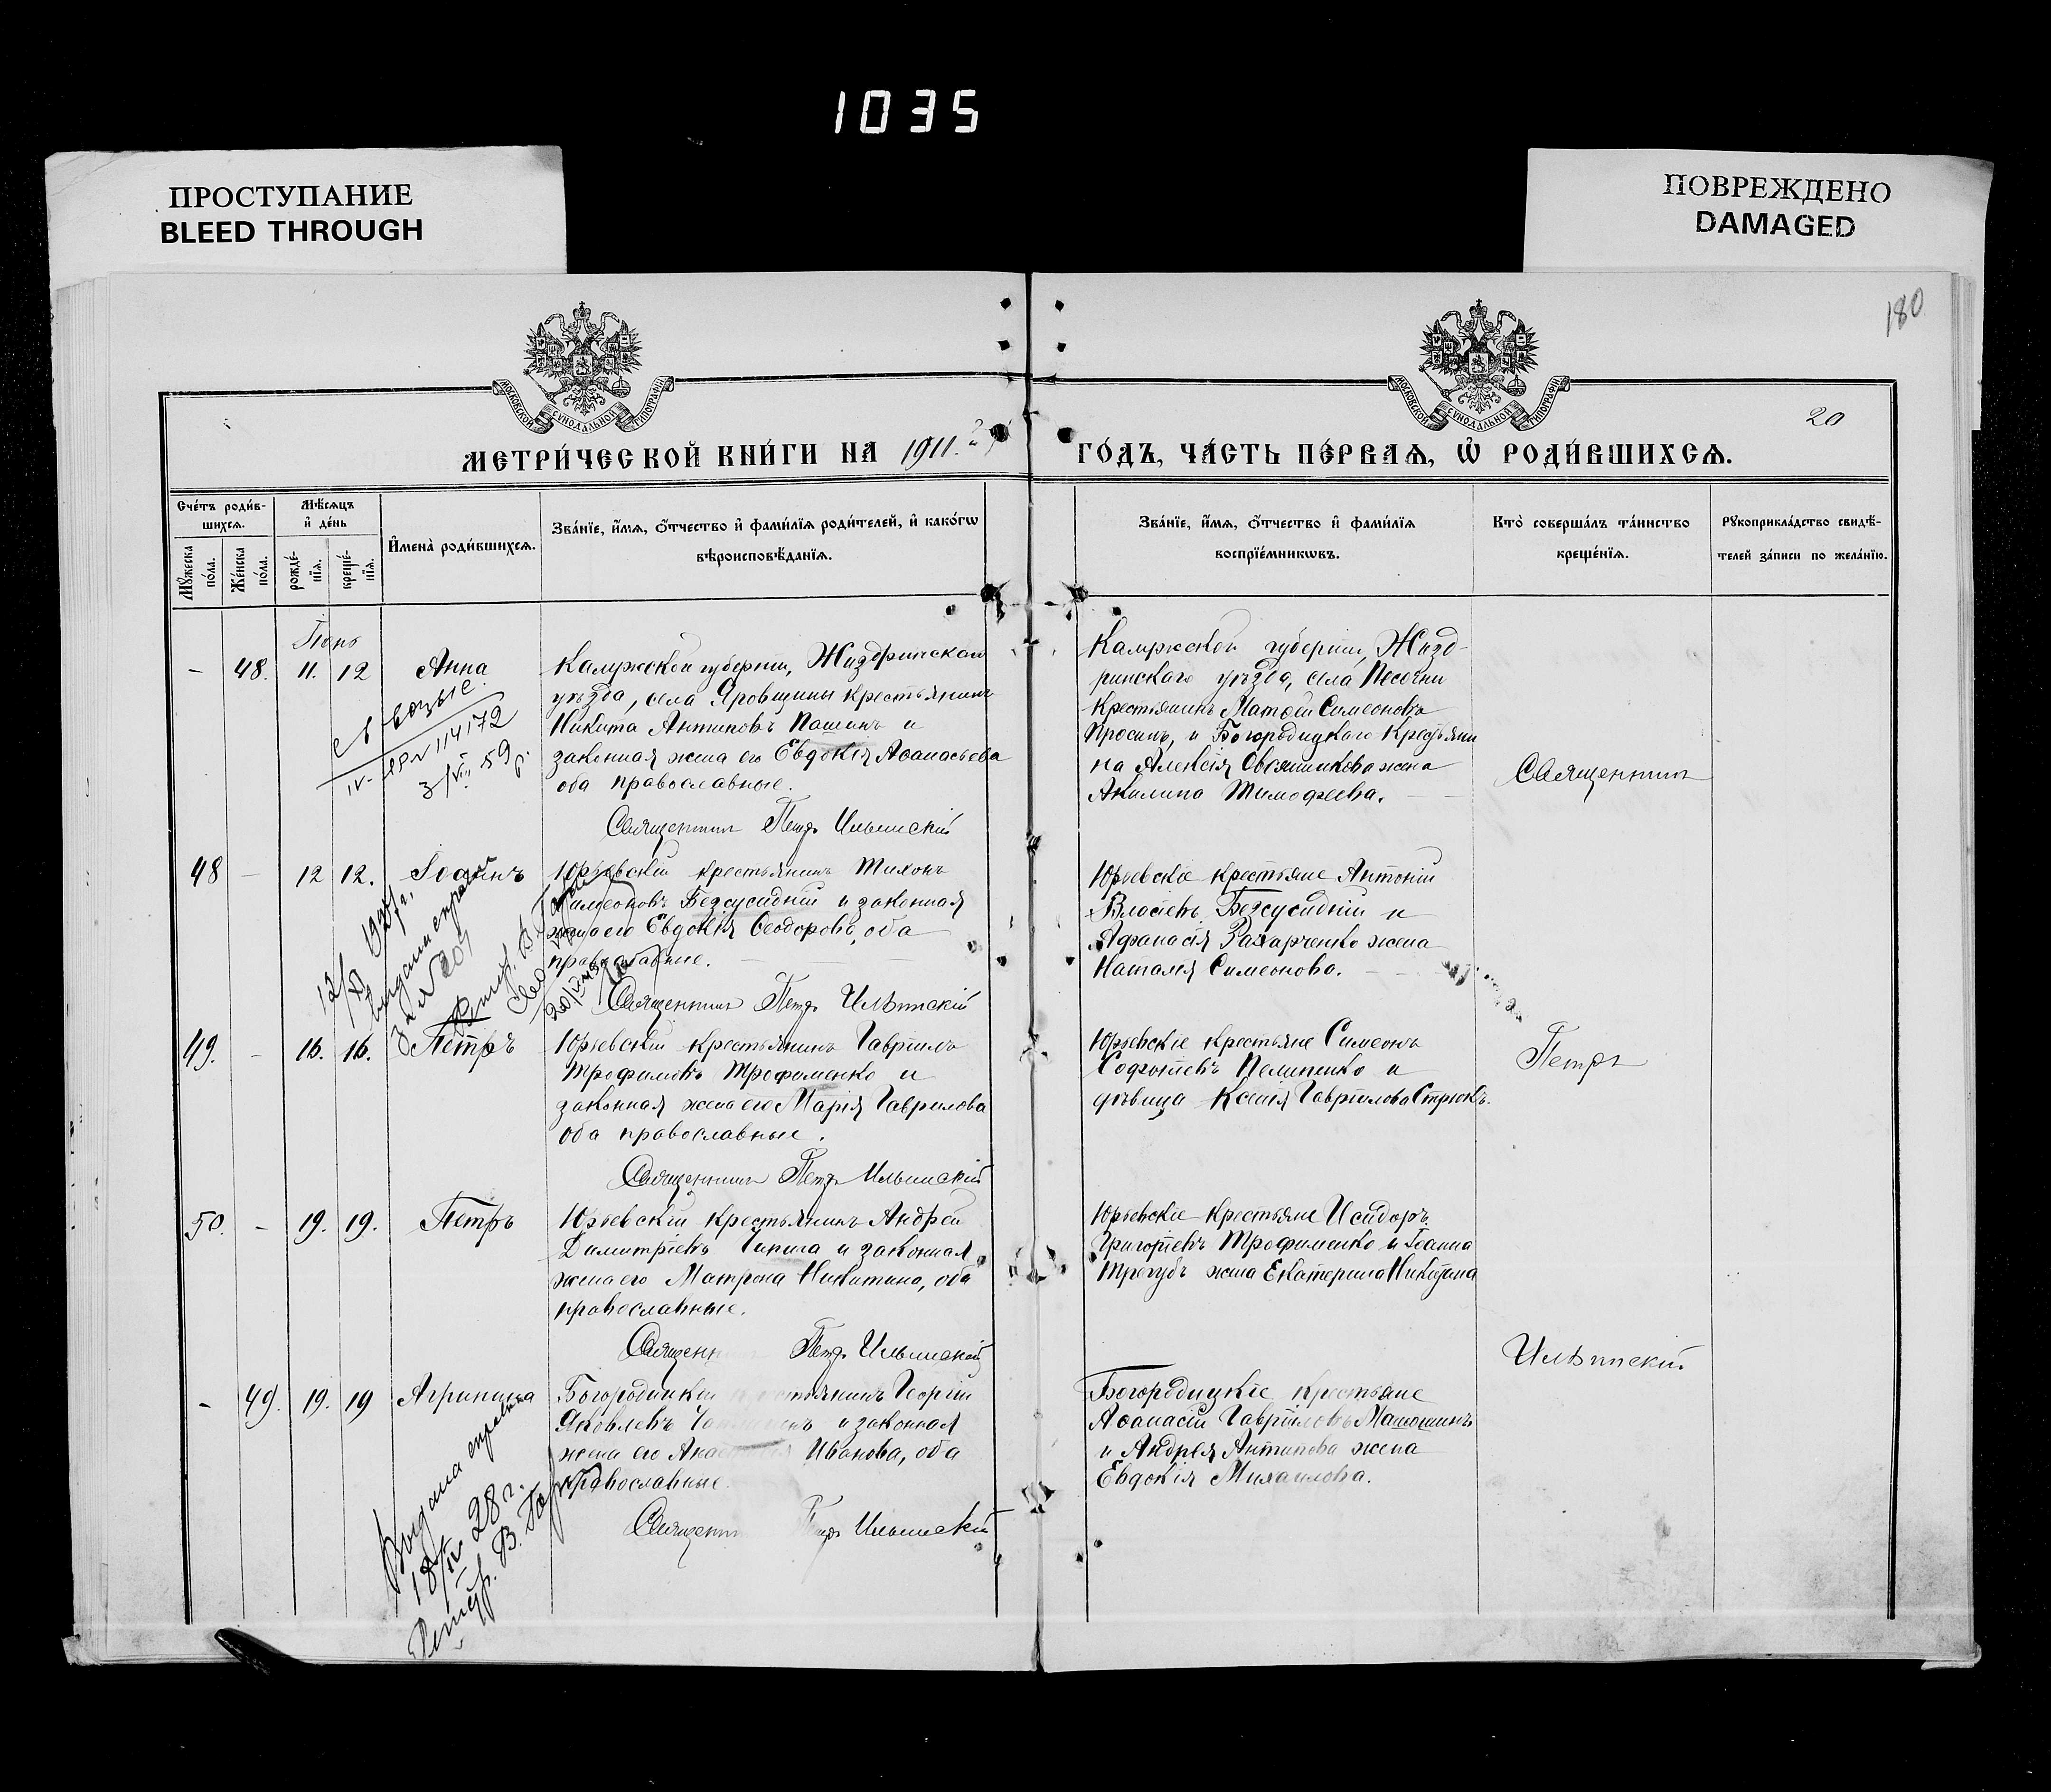 1035
ПРОСТУПАНИЕ
BLEED THROUGH
ПОВРЕЖДЕНО
DAMAGED
180
20
МОСКОВСКОЙ СѴНОДАЛЬНОЙ ТИПОГРАФІИ
МОСКОВСКОЙ СѴНОДАЛЬНОЙ ТИПОГРАФІИ
МЕТРИ́ЧЕСКОЙ КНИ́ГИ НА 1911.
ГО́ДЪ, ЧА́СТЬ ПЕ́РВАѦ, Ѽ РОДИ́ВШИХСѦ.
Сче́тъ роди́в-
шихсѧ.
Мꙋжеска по́ла.
Же́нска по́ла.
Мѣ́сѧцъ
и҆ де́нь
рожде́-
нїѧ.
креще́-
нїѧ.
И҆мена̀ роди́вшихсѧ.
Зва́нїе, и҆́мѧ, ѻ҆́тчество и҆ фами́лїѧ роди́телей, и҆ како́гѡ
вѣроисповѣ́данїѧ.
Зва́нїе, и҆́мѧ, ѻ҆́тчество и҆ фами́лїѧ
воспрїе́мникѡвъ.
Кто̀ соверша́лъ та́инство
креще́нїѧ.
Рꙋкоприкла́дство свидѣ́-
телей за́писи по жела́нїю.
Іюнь
— 48. 11. 12 Анна
Калужской губерніи, Жиздринскаго
уѣзда, села Яровщины крестьянинъ
Никита Антиповъ Пашинъ и
законная жена его Евдокія Аѳанасьева
оба православные.
Священникъ Петръ Ильинскій
Калужской губерніи, Жизд-
ринскаго уѣзда, села Песочни
крестьянинъ Матѳей Симеоновъ
Просинъ, и Богородицкаго крестьяни
на Алексія Овсянникова жена
Акилина Тимофеева.
Священникъ
114172
59 г.
48 — 12 12. Іоаннъ
Юрьевскій крестьянинъ Тихонъ
Симеоновъ Безсусидній и законная
жена его Евдокія Ѳеодорова, оба
православные.
Священникъ Петръ Ильинскій
Юрьевскіе крестьяне Антоній
Власіевъ Безсусидній и
Афанасія Захарченко жена
Наталія Симеонова.
49. — 16. 16. Петръ
Юрьевскій крестьянинъ Гавріилъ
Трофимовъ Трофименко и
законная жена его Марія Гаврилова
оба православные.
Священникъ Петръ Ильинскій
Юрьевскіе крестьяне Симеонъ
Софоніевъ Пелипенко и
дѣвица Ксенія Гавріилова Стрюкъ.
Петръ
50. — 19. 19. Петръ
Юрьевскій крестьянинъ Андрей
Димитріевъ и законная
жена его Матрона Никитина, оба
православные.
Священн Петръ Ильинскій
Юрьевскіе крестьяне Исидоръ
Григоріевъ Трофименко и Іоанна
Трегубъ жена Екатерина Никитина
Ильинскій
— 49. 19. 19 Агрипина
Богородицкій крестьянинъ Георгій
Яковлевъ и законная
жена его Анастасія Иванова, оба
православные.
Священн Петръ Ильинскій
Богородицкіе крестьяне
Аѳанасій Гавріиловъ Матюшинъ
и Андрея Антипова жена
Евдокія Михаилова.
Выдана справка
18/IV 28 г.